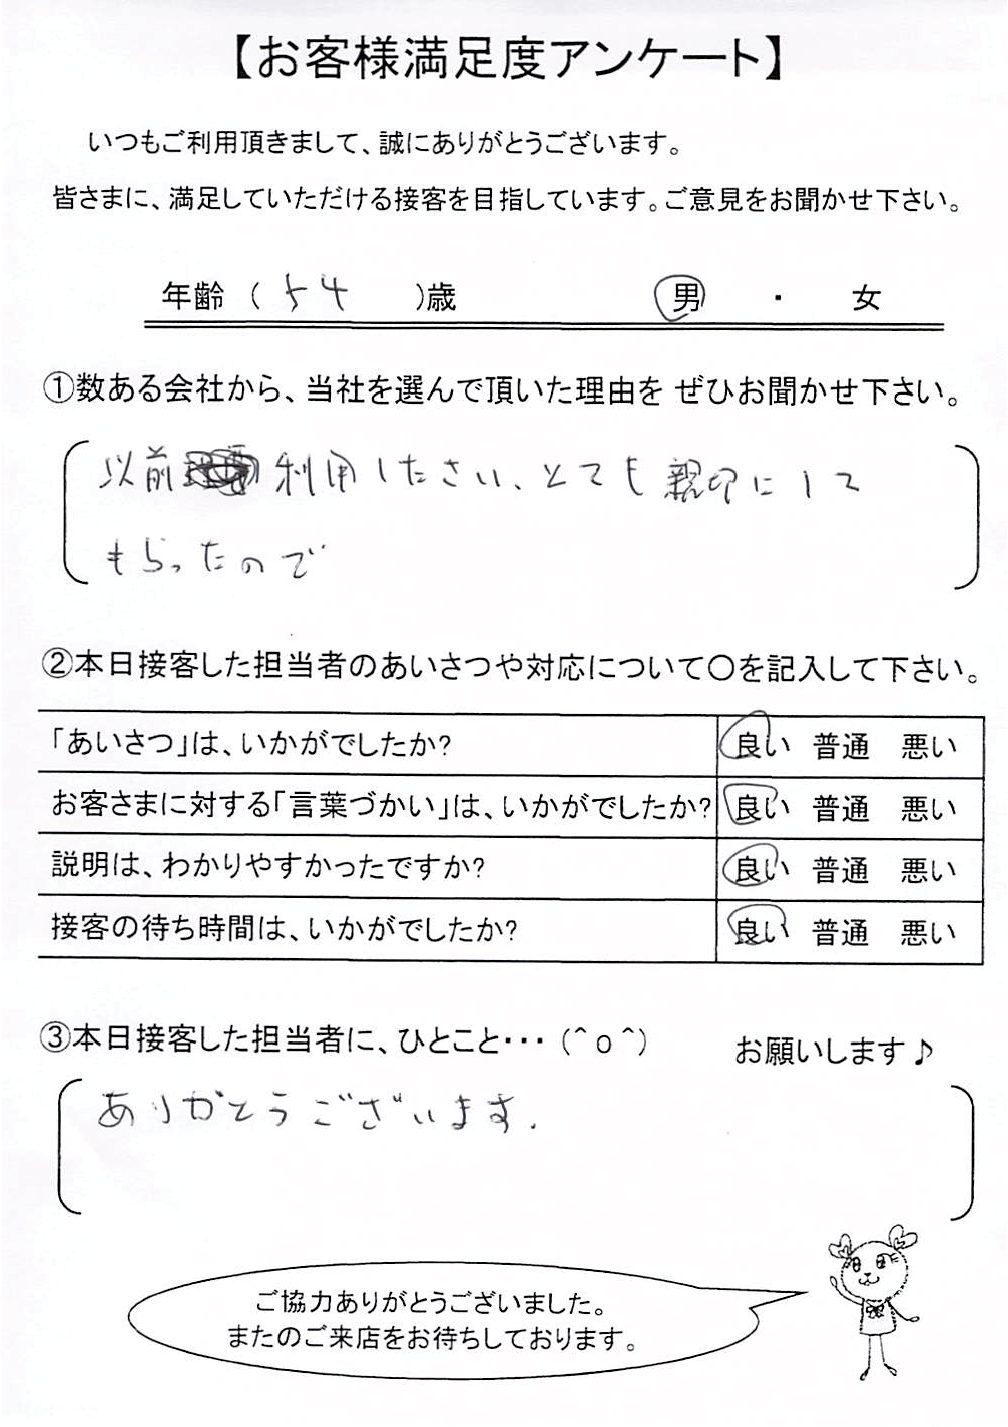 【お客様満足度アンケート】
いつもご利用頂きまして、誠にありがとうございます。
皆さまに、満足していただける接客を目指しています。ご意見をお聞かせ下さい。
年齢 ( 54 )歳 男 ・ 女
①数ある会社から、当社を選んで頂いた理由を ぜひお聞かせ下さい。
以前 利用したさい、とても親切にして
もらったので
②本日接客した担当者のあいさつや対応について〇を記入して下さい。
「あいさつ」は、いかがでしたか? 良い 普通 悪い
お客さまに対する「言葉づかい」は、いかがでしたか? 良い 普通 悪い
説明は、わかりやすかったですか? 良い 普通 悪い
接客の待ち時間は、いかがでしたか? 良い 普通 悪い
③本日接客した担当者に、ひとこと・・・(^o^) お願いします♪
ありがとうございます.
ご協力ありがとうございました。
またのご来店をお待ちしております。